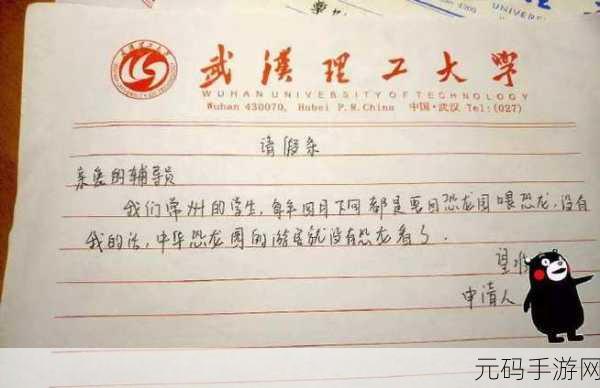 UNIVER
武漢理工大学
WUHAN UNIVERSITY OF TECHNOLOGY
Wuhan 430070, Hubei P.R.China 中国·武汉 Tel:(027)
请假条
亲爱的辅导员
我们常州的学生,每年四月下旬都是要回恐龙园喂恐龙,没有
我的话,中华恐龙园的游客就没有恐龙看了.
望
申请人
元码手游网